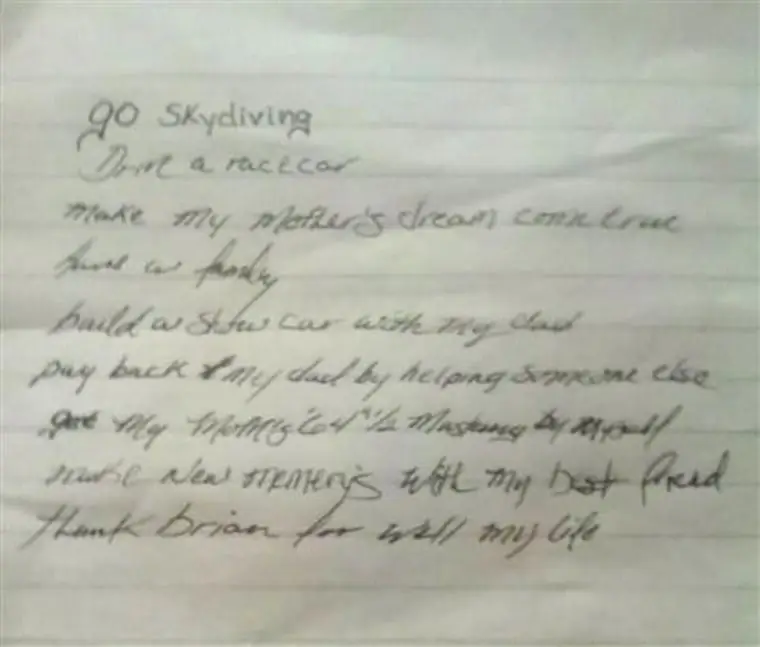 go skydiving
Drive a racecar
make my mother's dream come true
have a family
build a show car with my dad
pay back my dad by helping someone else
get my mom's '64 1/2 Mustang by myself
make New memery's with my best freind
thank brian for my life